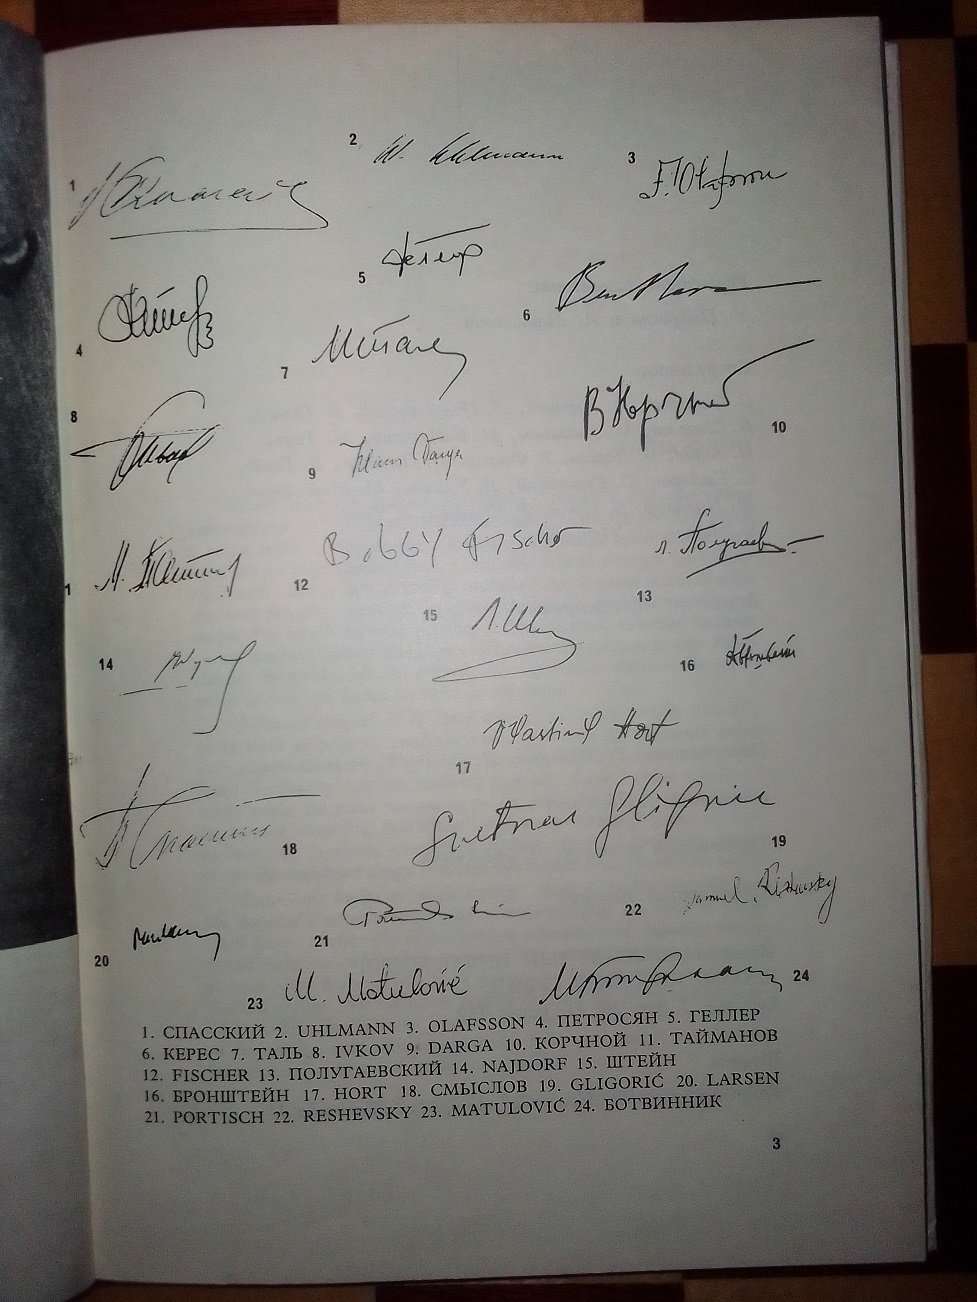 1
2 W. Uhlmann
3 F. Olafsson
4
5 Геллер
6
7 М Таль
8
9 Klaus Darga
10 В Корчной
1 М. Тайманов
12 Bobby Fischer
13 Л. Полугаев
14
15 Л. Ш
16
17 Vlastimil Hort
18
19 Svetozar Gligoric
20
21
22 Samuel Reshevsky
23 M. Matulović
24
1. СПАССКИЙ 2. UHLMANN 3. OLAFSSON 4. ПЕТРОСЯН 5. ГЕЛЛЕР
6. КЕРЕС 7. ТАЛЬ 8. IVKOV 9. DARGA 10. КОРЧНОЙ 11. ТАЙМАНОВ
12. FISCHER 13. ПОЛУГАЕВСКИЙ 14. NAJDORF 15. ШТЕЙН
16. БРОНШТЕЙН 17. HORT 18. СМЫСЛОВ 19. GLIGORIĆ 20. LARSEN
21. PORTISCH 22. RESHEVSKY 23. MATULOVIĆ 24. БОТВИННИК
3